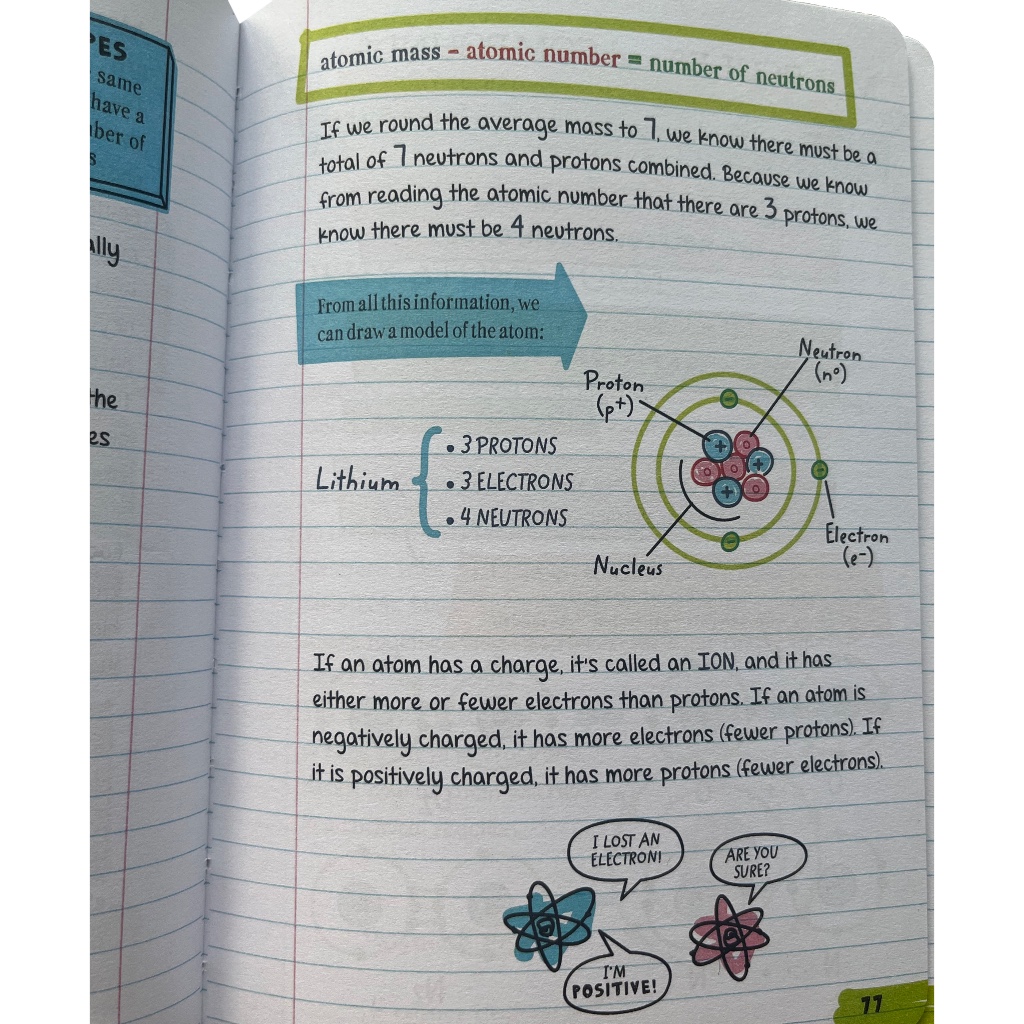 same
have a
of
the
atomic mass - atomic number = number of neutrons
If we round the average mass to 7, we know there must be a
total of 7 neutrons and protons combined. Because we know
from reading the atomic number that there are 3 protons, we
know there must be 4 neutrons.
From all this information, we
can draw a model of the atom:
Neutron
(n°)
Proton
(p+)
Lithium
• 3 PROTONS
• 3 ELECTRONS
• 4 NEUTRONS
+
+
+
Electron
(e-)
Nucleus
If an atom has a charge, it's called an ION, and it has
either more or fewer electrons than protons. If an atom is
negatively charged, it has more electrons (fewer protons). If
it is positively charged, it has more protons (fewer electrons).
I LOST AN
ELECTRON!
ARE YOU
SURE?
I'M
POSITIVE!
77